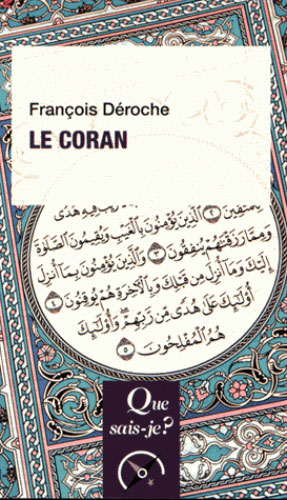 François Déroche
LE CORAN
هُدًى
لِّلْمُتَّقِينَ ٢ ٱلَّذِينَ يُؤْمِنُونَ بِٱلْغَيْبِ وَيُقِيمُونَ ٱلصَّلَوٰةَ
وَمِمَّا رَزَقْنَٰهُمْ يُنفِقُونَ ٣ وَٱلَّذِينَ يُؤْمِنُونَ بِمَآ أُنزِلَ
إِلَيْكَ وَمَآ أُنزِلَ مِن قَبْلِكَ وَبِٱلْءَاخِرَةِ هُمْ يُوقِنُونَ ٤
أُو۟لَٰٓئِكَ عَلَىٰ هُدًى مِّن رَّبِّهِمْ وَأُو۟لَٰٓئِكَ
هُمُ ٱلْمُفْلِحُونَ ٥
Que
sais-je?